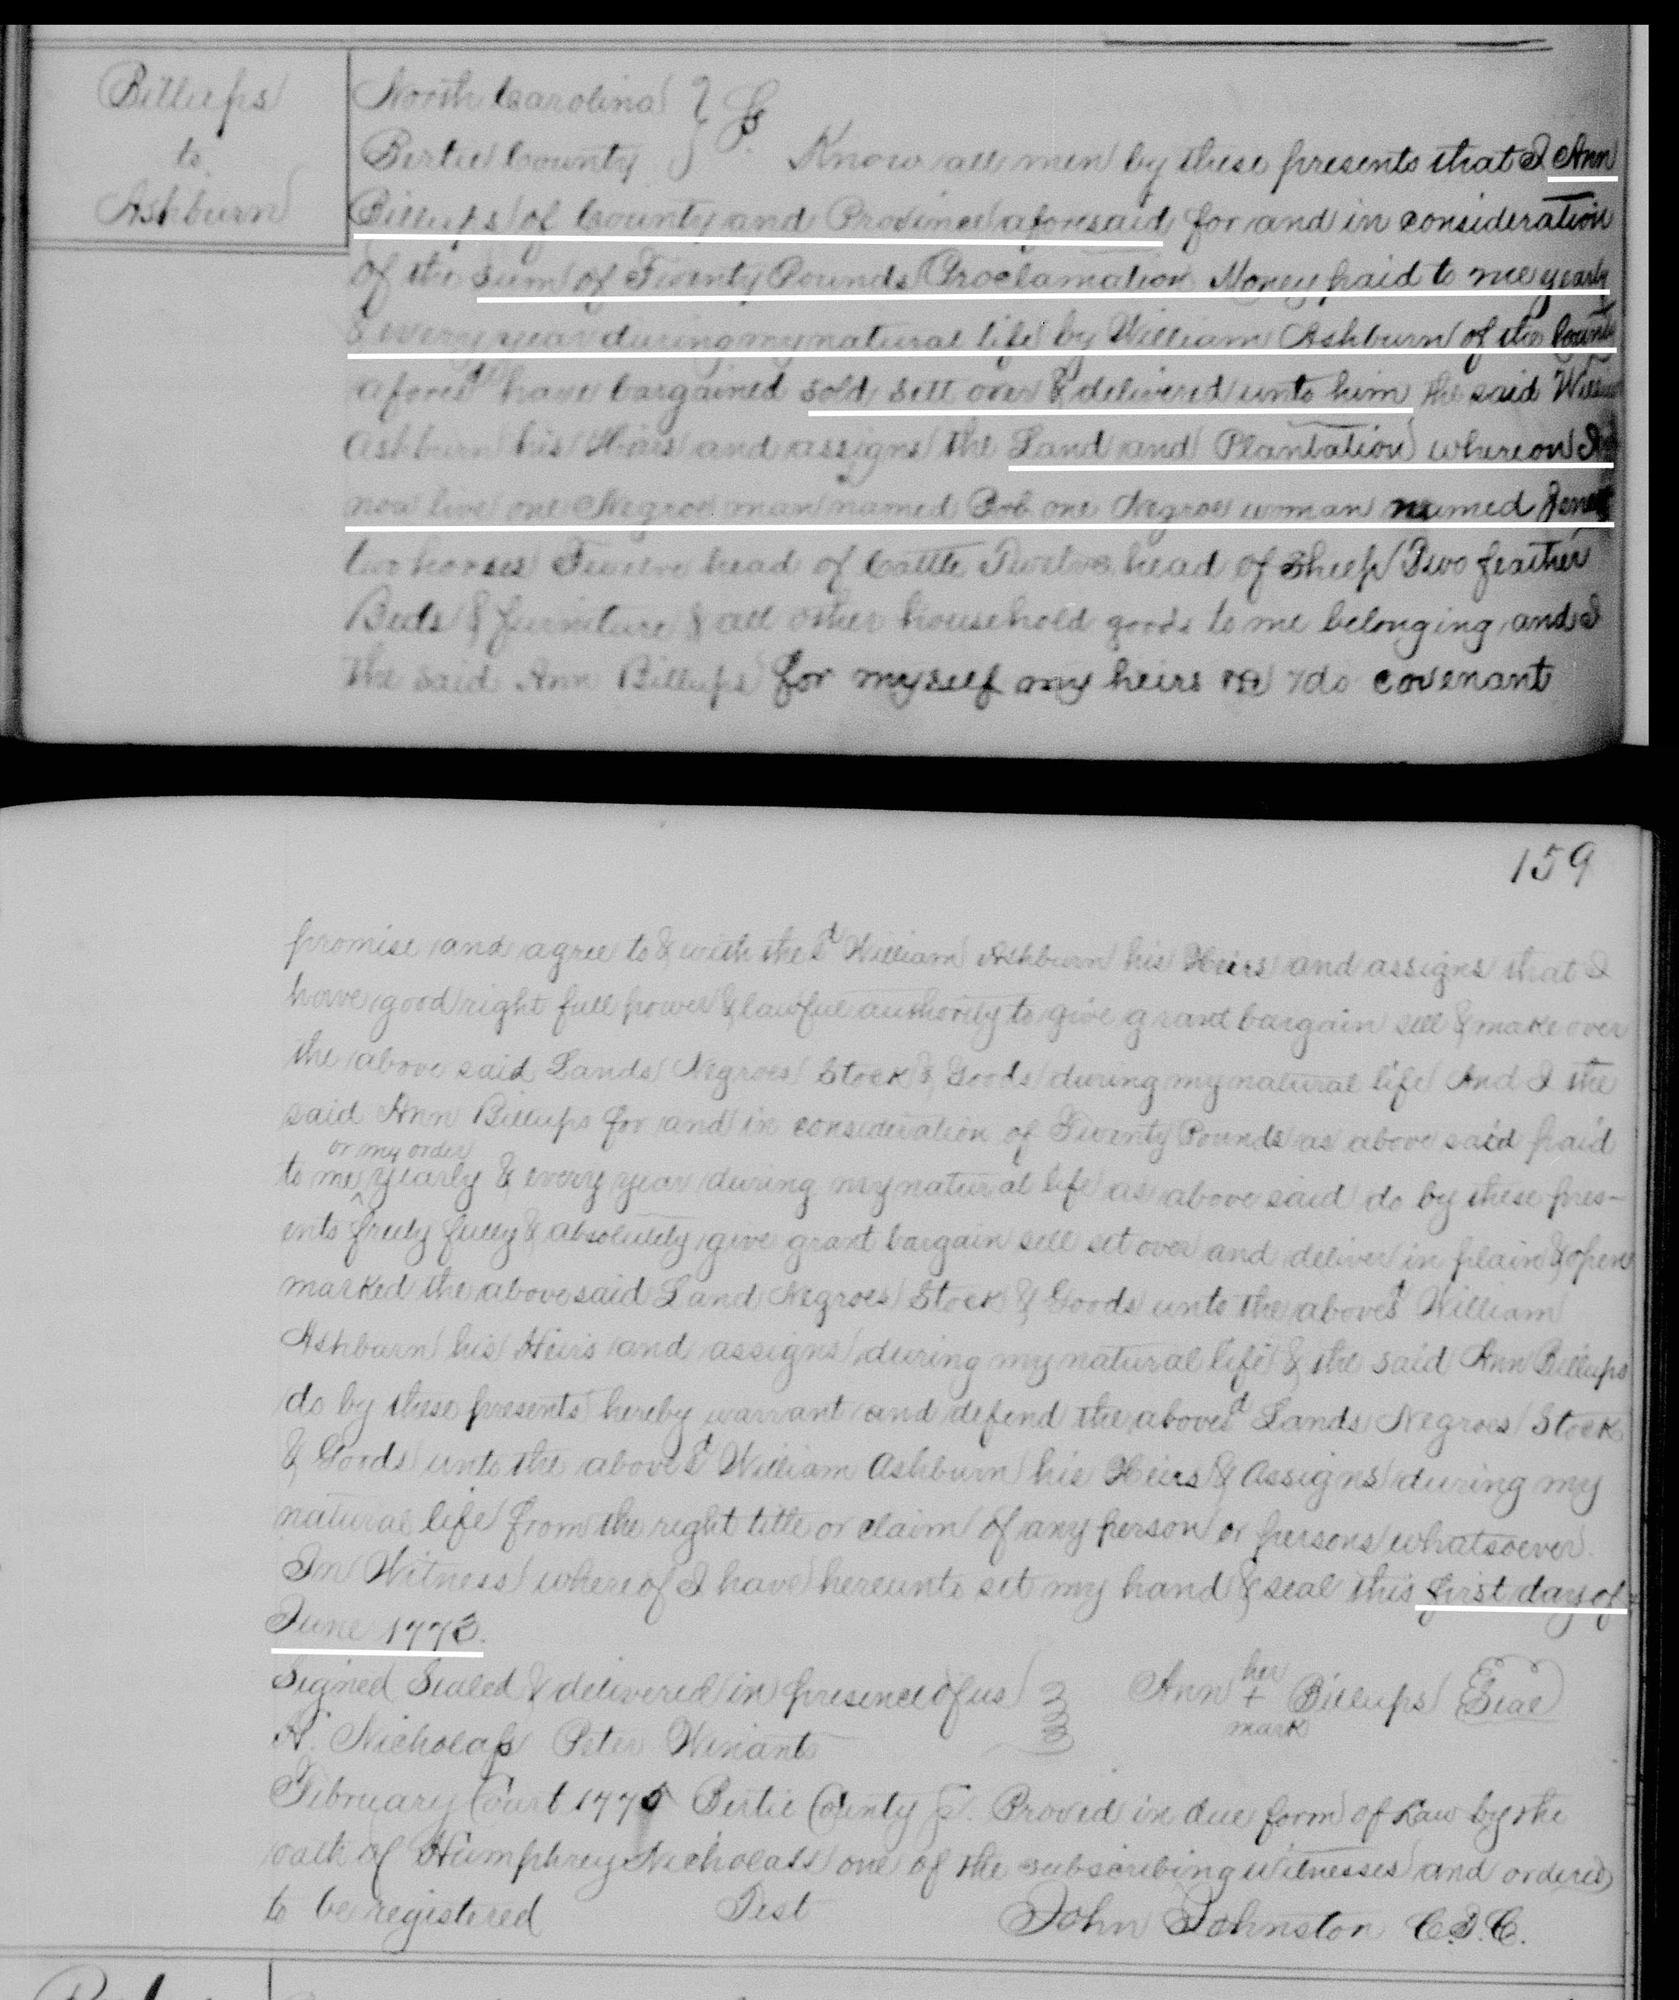 Billups
to
Ashburn
North Carolina }
Bertie County } Ss. Know all men by these presents that I Ann
Billups of County and Province aforesaid for and in consideration
of the sum of Twenty Pounds Proclamation Money paid to me yearly
& every year during my natural life by William Ashburn of the County
afores^d have bargained sold sett over & delivered unto him the said William
Ashburn his Heirs and assigns the Land and Plantation whereon I
now live one Negroe man named Bob one Negroe woman named
two horses Twelve head of Cattle Twelve head of Sheep Two feather
Beds & furniture & all other household goods to me belonging and I
the said Ann Billups for myself my heirs &c do covenant
159
promise and agree to & with the s^d William Ashburn his Heirs and assigns that I
have good right full power & lawful authority to give grant bargain sell & make over
the above said Lands Negroes Stock & Goods during my natural life And I the
said Ann Billups for and in consideration of Twenty Pounds as above said paid
or my order
to me yearly & every year during my natural life as above said do by these pres-
ents freely fully & absolutely give grant bargain sell set over and deliver in plain & open
marked the abovesaid Land Negroes Stock & Goods unto the aboves^d William
Ashburn his Heirs and assigns during my natural life & the said Ann Billups
do by these presents hereby warrant and defend the aboves^d Lands Negroes Stock
& Goods unto the aboves^d William Ashburn his Heirs & Assigns during my
natural life from the right title or claim of any person or persons whatsoever.
In Witness whereof I have hereunto set my hand & seal this first day of
June 1773.
Signed Sealed & delivered in presence of us } Ann her + mark Billups Seal
H. Nicholass Peter Winants
February Court 1775 Bertie County Ss. Proved in due form of Law by the
oath of Humphrey Nicholass one of the subscribing witnesses and ordered
to be registered Test John Johnston C.B.C.